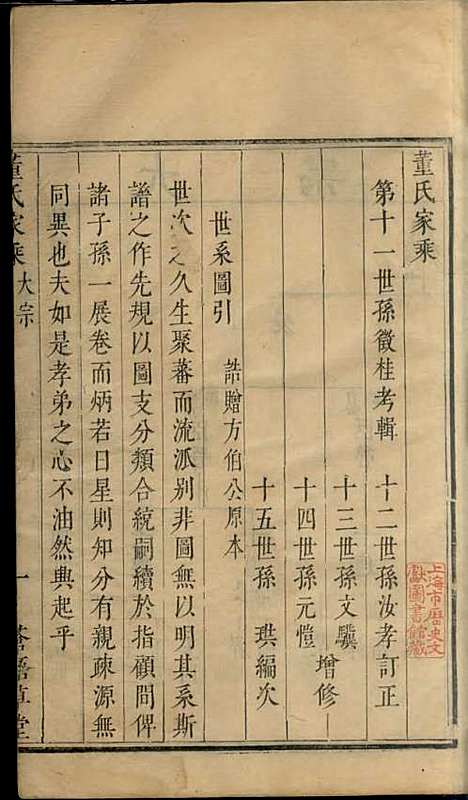 董氏家乘
第十一世孫徵桂考輯 十二世孫汝孝訂正
十三世孫文驥
增修
十四世孫元愷
十五世孫 琪編次
世系圖引 誥贈方伯公原本
世次之久生聚蕃而流派别非圖無以明其系斯
譜之作先規以圖支分類合統嗣續於指顧間俾
諸子孫一展卷而炳若日星則知分有親疎源無
同異也夫如是孝弟之心不油然興起乎
董氏家乘 大宗 一 草堂
上海市歷史文
獻圖書館藏